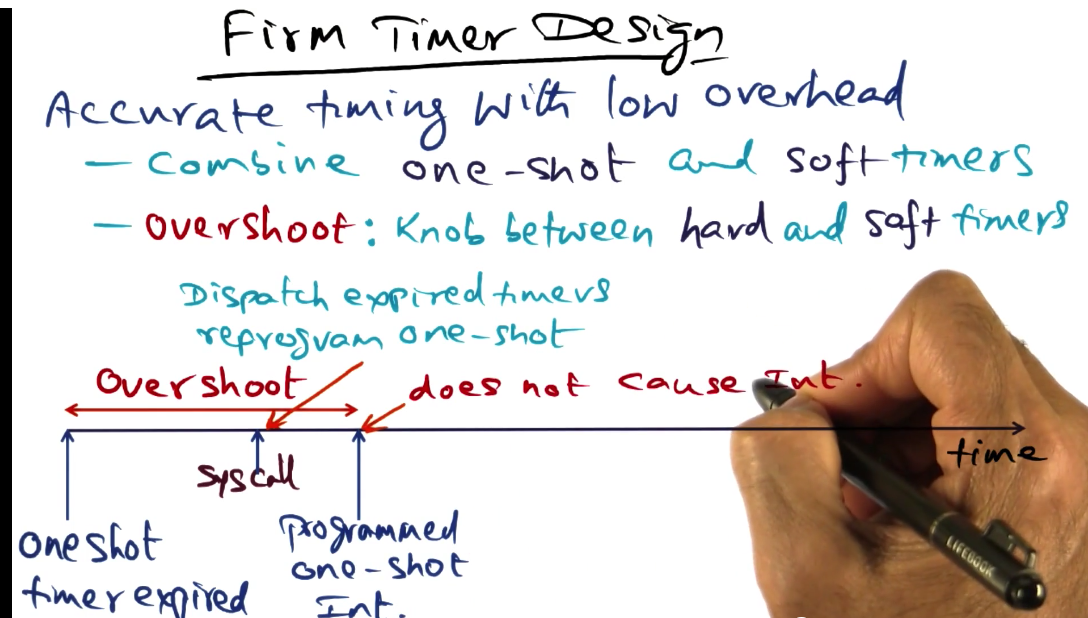 Firm Timer Design
Accurate timing with low overhead
— Combine one-shot and soft timers
— Overshoot: Knob between hard and soft timers
Dispatch expired timers
reprogram one-shot
Overshoot does not cause Int.
time
Syscall
one shot
timer expired
Programmed
one-shot
Int.
LIFEBOOK